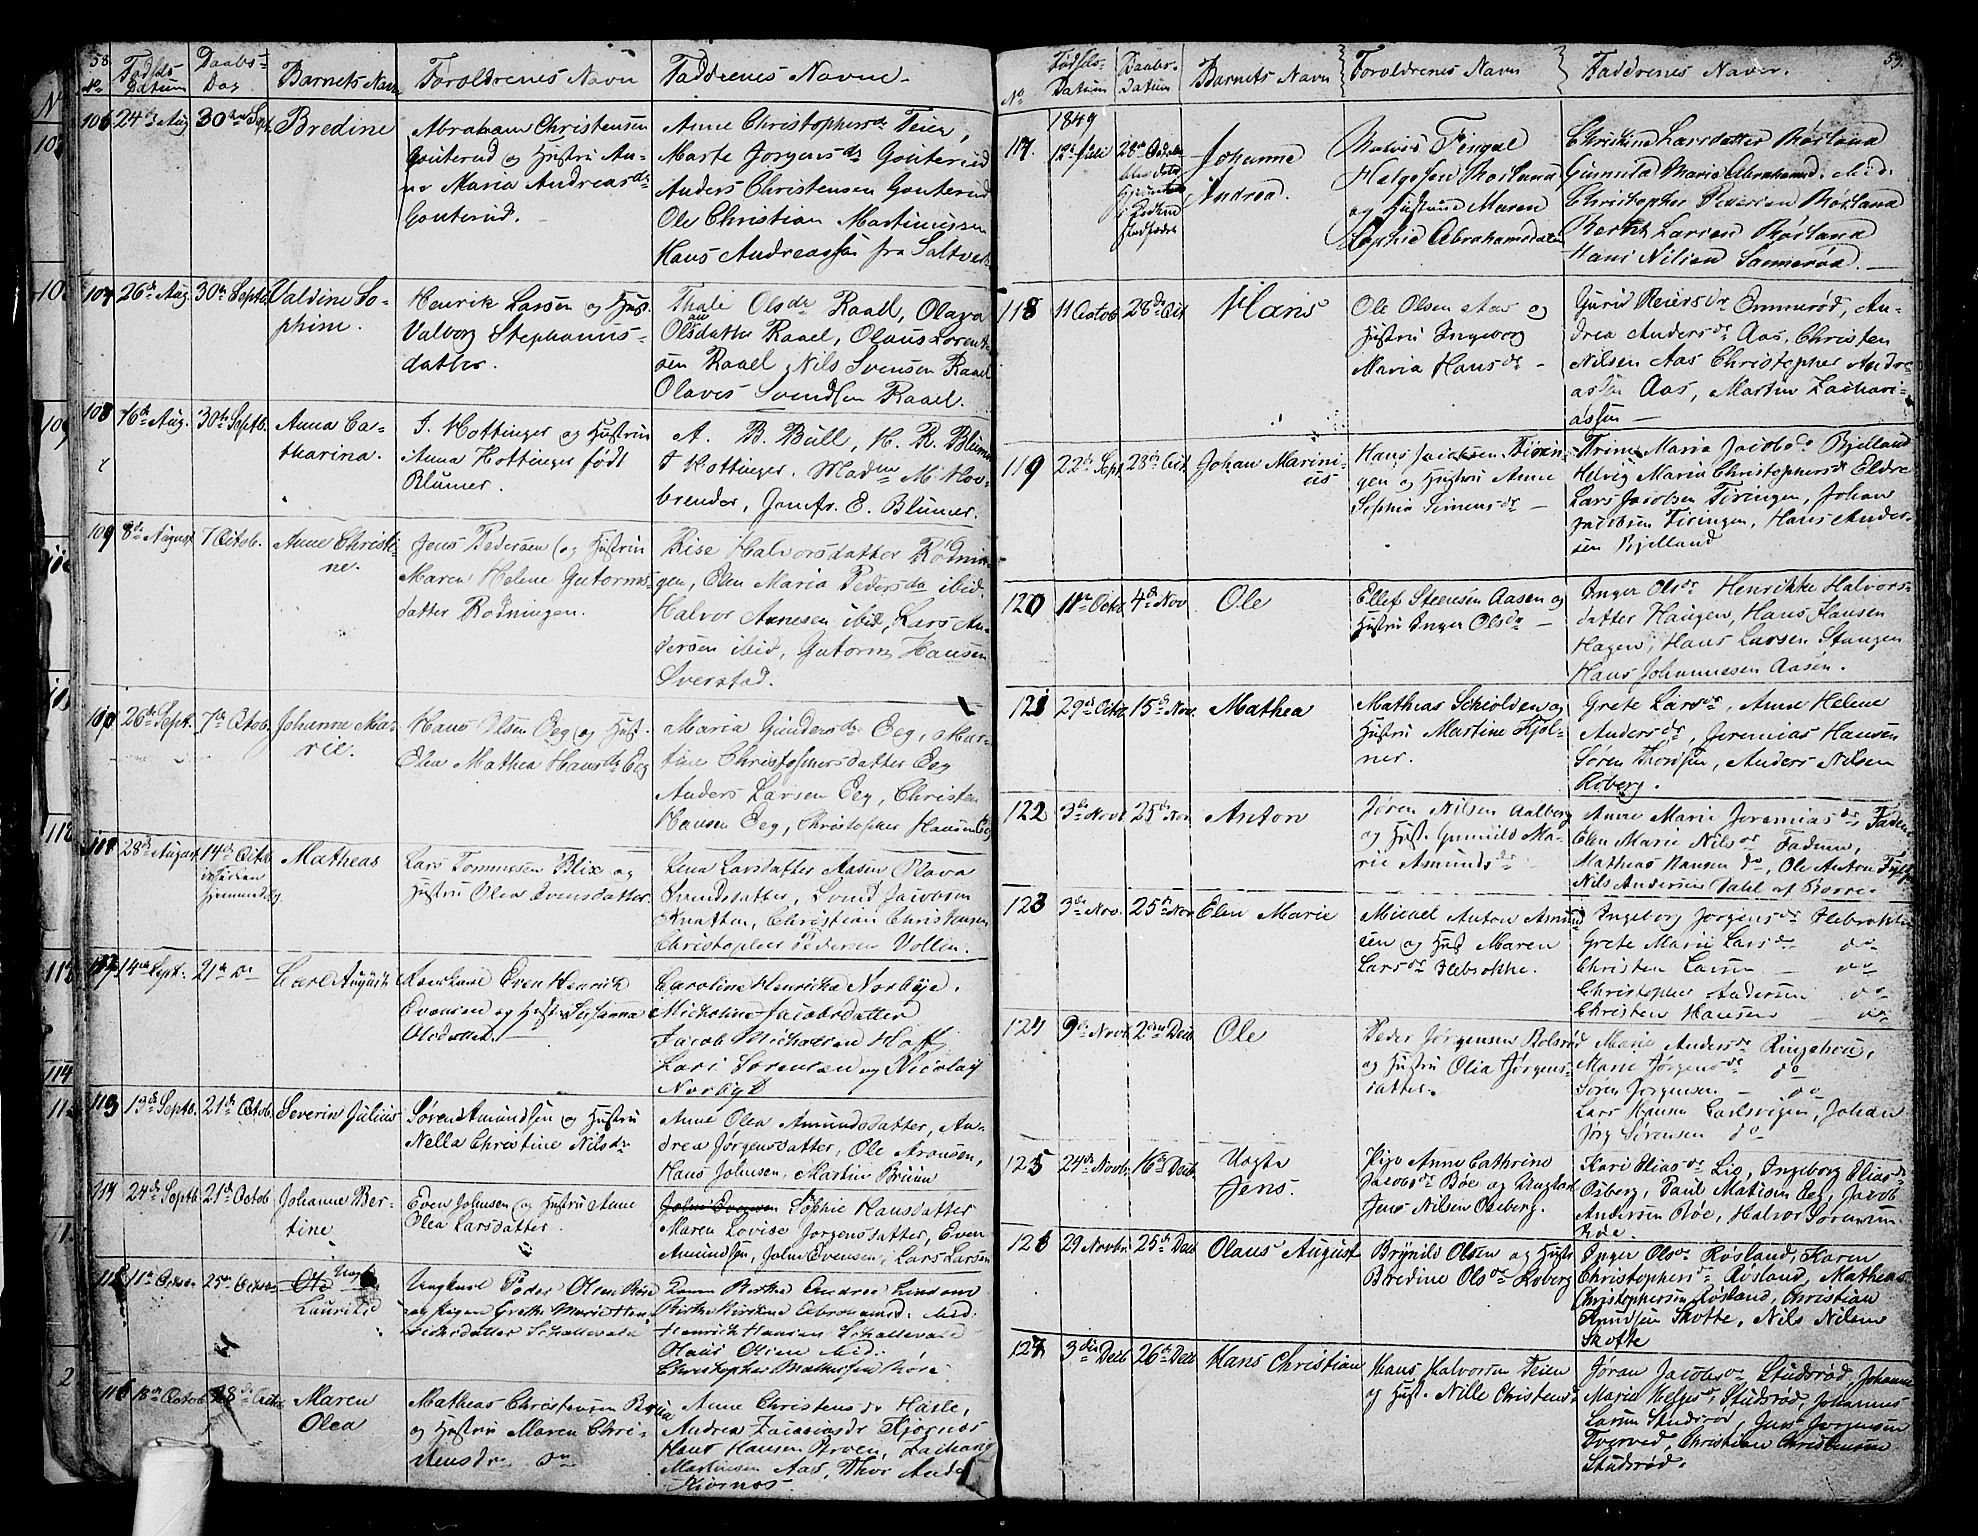 58
No
Fødsels-
Datum
Daabs-
Dag
Barnets Navn
Foroldrenes Navn
Faddrenes Navne.
106 24de Aug 30te Sept. Bredine
Abraham Christensen
Gouterud og Hustru An-
ne Maria Andreasdr
Gouterud.
Anne Christophersdr Teier,
Marte Jorgensdr Gouterud
Anders Christensen Gouterud
Ole Christian Martinussen
Hans Andreassen fra Saltvek
107 26de Aug. 30te Septb Valdine So-
phine.
Henrik Larsen og Hust.
Valborg Stephanus-
datter.
Thale Olsdr Raael, Olava
Olsdatter Raael, Olaus Lorent-
sen Raael, Nils Svensen Raael
Olaves Svendsen Raael.
108 16de Aug. 30te Septb. Anna Ca-
tharina.
J. Hottinger og Hustru
Anna Hottinger født
Blumer.
A. B. Bull, H. R. Blumer
J Hottinger. Madm M. Hov-
brender, Jomfr. E. Blumer.
109 8de August 7 Octob. Anne Christi-
ne.
Jens Pedersen og Hustru
Maren Helene Gutorms-
datter Rodningen.
Rise Halvorsdatter Rodnin-
gen, Elen Maria Pedersdr ibid.
Halvor Annesen ibid, Lars An-
dersen ibid, Gutorm Hansen
Sverstad.
110 26de Sept. 7de Octob. Johanne Ma-
rie.
Hans Olsen Eeg og Hust.
Elen Mathea Hansdr Eeg
Maria Gundersdr Eeg, Mar-
tine Christophersdatter Eeg
Anders Larsen Eeg, Christen
Hansen Eeg, Christopher Hansen Eeg
111 28de August 14de Octob Matheas
Lars Tommesen Blix og
Hustru Olea Evensdatter.
Lena Larsdatter Aasen Olava
Svendsdatter, Svend Jacobsen
Knatten, Christian Christensen
Christopher Pedersen Vollen.
112 14de Sept. 21de do Carl August
Even Henrick
Evensen og Hustr Susanna
Olsdatter.
Caroline Henricka Norbye.
Micheline Jacobsdatter
Jacob Michaelsen Hoff
Lars Sørensen og Nicolay
Norbye
113 19de Septb. 21de Octob. Severin Julius
Søren Amundsen og Hustru
Nella Christine Nilsdr
Anne Olea Amundsdatter, An-
drea Jørgensdatter, Ole Aronsen,
Hans Johnsen, Martin Bruun
114 24de Septb 21de Octob Johanne Ber-
tine
Even Johnsen og Hustru Anne
Olea Larsdatter.
John Evensen Sophie Hansdatter
Maren Lovise Jorgensdatter, Even
Amundsen, John Evensen, Lars Larsen
115 11te October 25de October Ole
Lauritz
Ungkarl Peder Olsen
og Pigen Grethe Marie Hen-
ricksdatter Schallevald
Berthe Andrea Lindom
Berthe Kirstine Abrahamsd. ibid.
Henrich Hansen Schallevald
Hans Olsen ibid.
Christopher Mathissen
116 18de Octob 28de Octob Maren
Olea
Mathias Christensen
og Hustru Maren Chri-
stensdr do
Anne Christensdr Hasle,
Andrea Zacariasdr Kjørnes
Hans Hansen Ørven, Zacharias
Martinsen Aas, Thor Anders
Kiørnes.
59.
No
Fødsels-
Datum
Daabs-
Datum
Barnets Navn
Foroldrenes Navn
Faddrenes Navne.
1849
117. 12te Juli 28de October
Johanne
Andrea.
Fingal
Helgesen Røsland
og Hustrue Maren
Sophie Abrahamsdatter
Christine Larsdatter Røsland
Gunnild Marie Abrahamsd. ibid.
Christopher Pedersen Røsland
Bernt Larsen Røsland
Hans Nilsen Sannerød.
118 11 Octob 28de Oct. Hans
Ole Olsen Aas og
Hustru Ingeborg
Maria Hansdr
Gurid Reiersdr Ommerød, An-
drea Andersdr Aas, Christen
Nilsen Aas Christopher Andre-
assen Aas, Martin Zachari-
assen
119 22de Sept 28de Oct. Johan Marini-
us
Hans Jacobsen Tirin-
gen og Hustru Anne
Sophia Simensdr
Trine Maria Jacobsdr Bjelland
Helvig Maria Christophersdr Eldre
Lars Jacobsen Tiringen, Johan
Jacobsen Tiringen, Hans Ander-
sen Bjelland
120 11te Octo. 4de Nov Ole
Ellef Steensen Aasen og
Hustru Inger Olsdr
Inger Olsdr Henrikke Halvors-
datter Haugen, Hans Hansen
Hagen, Hans Larsen Stangen
Hans Johannesen Aasen.
121 29de Octo. 15de Nov. Mathea
Mathias Schiolden og
Hustru Martine Kjøl-
ner.
Grete Larsdr, Anne Helene
Andersdr, Jeremias Hansen
Søren Thordsen, Anders Nilsen
Roberg.
122 3de Novb. 25de Nov Anton
Jøren Nilsen Aalberg
og Hust. Gunnild Ma-
rie Amundsdr
Anne Marie Jeremiasdr Fadum
Elen Marie Nilsdr Fadum,
Mathias Hansen do, Ole Anton
Nils Andersen Dahl af Borre.
123 3de Nov. 25de Nov Elen Marie
Micael Anton Amund-
sen og Hust Maren
Larsdr Hebsokke.
Ingeborg Jorgensdr Hebsokke
Grete Marie Larsdr do
Christen Larsen do
Christopher Andersen do
Christen Hansen do
124 9de Novb. 2den Decb. Ole
Peder Jørgensen Rolsrød
og Hustru Olia Jørgens-
datter.
Marie Andersdr Ringshoug,
Marie Jørgensdr do
Søren Jørgensen do
Lars Hansen Carlsvigen, Johan
Jørg Sørensen do
125 24de Novb. 16de Decb. Uægte
Jens.
Pige Anne Cathrine
Jacobsdr Bøe og Ungkarl
Jens Nilsen Oseberg.
Kari Eliasdr Lie, Ingeborg Eliasdr
Osberg, Paul Matisen Eeg, Jacob
Andersen Bøe, Halvor Sørensen
Bøe.
126 29 Novbr. 25de Decb Olaus August
Brynild Olsen og Hustr
Bredine Olsdr Roberg
Inger Olsdr Røsland, Karen
Christophersdr Røsland, Mathias
Christoppersen Røsland, Christian
Amundsen Skotte, Nils Nilsen
Skotte
127. 3die Decb 26de Decb Hans Christian
Hans Halvorsen Teien
og Hust. Nille Christensd.
Jøran Jacobsdr Studsrød, Johanne
Marie Studsrød, Johannes
Larsen Studsrød, Jens Jørgensen
Tverved, Christian Christensen
Studsrød.